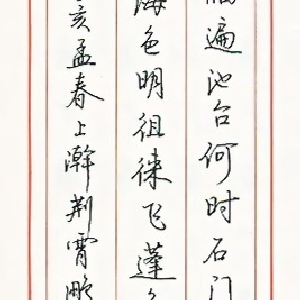 临遍池台何时石门
海色明徂徕飞蓬各
亥孟春上澣荆霄鹏